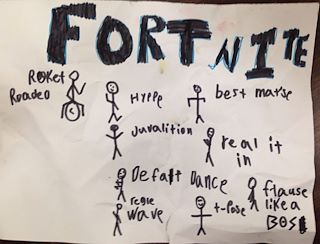 FORTNITE
ROKet
Roadeo
Hyppe
best mat'se
Juvalition
real it
in
Defalt Dance
regle
wave
t-pose
flause
like a
BOS